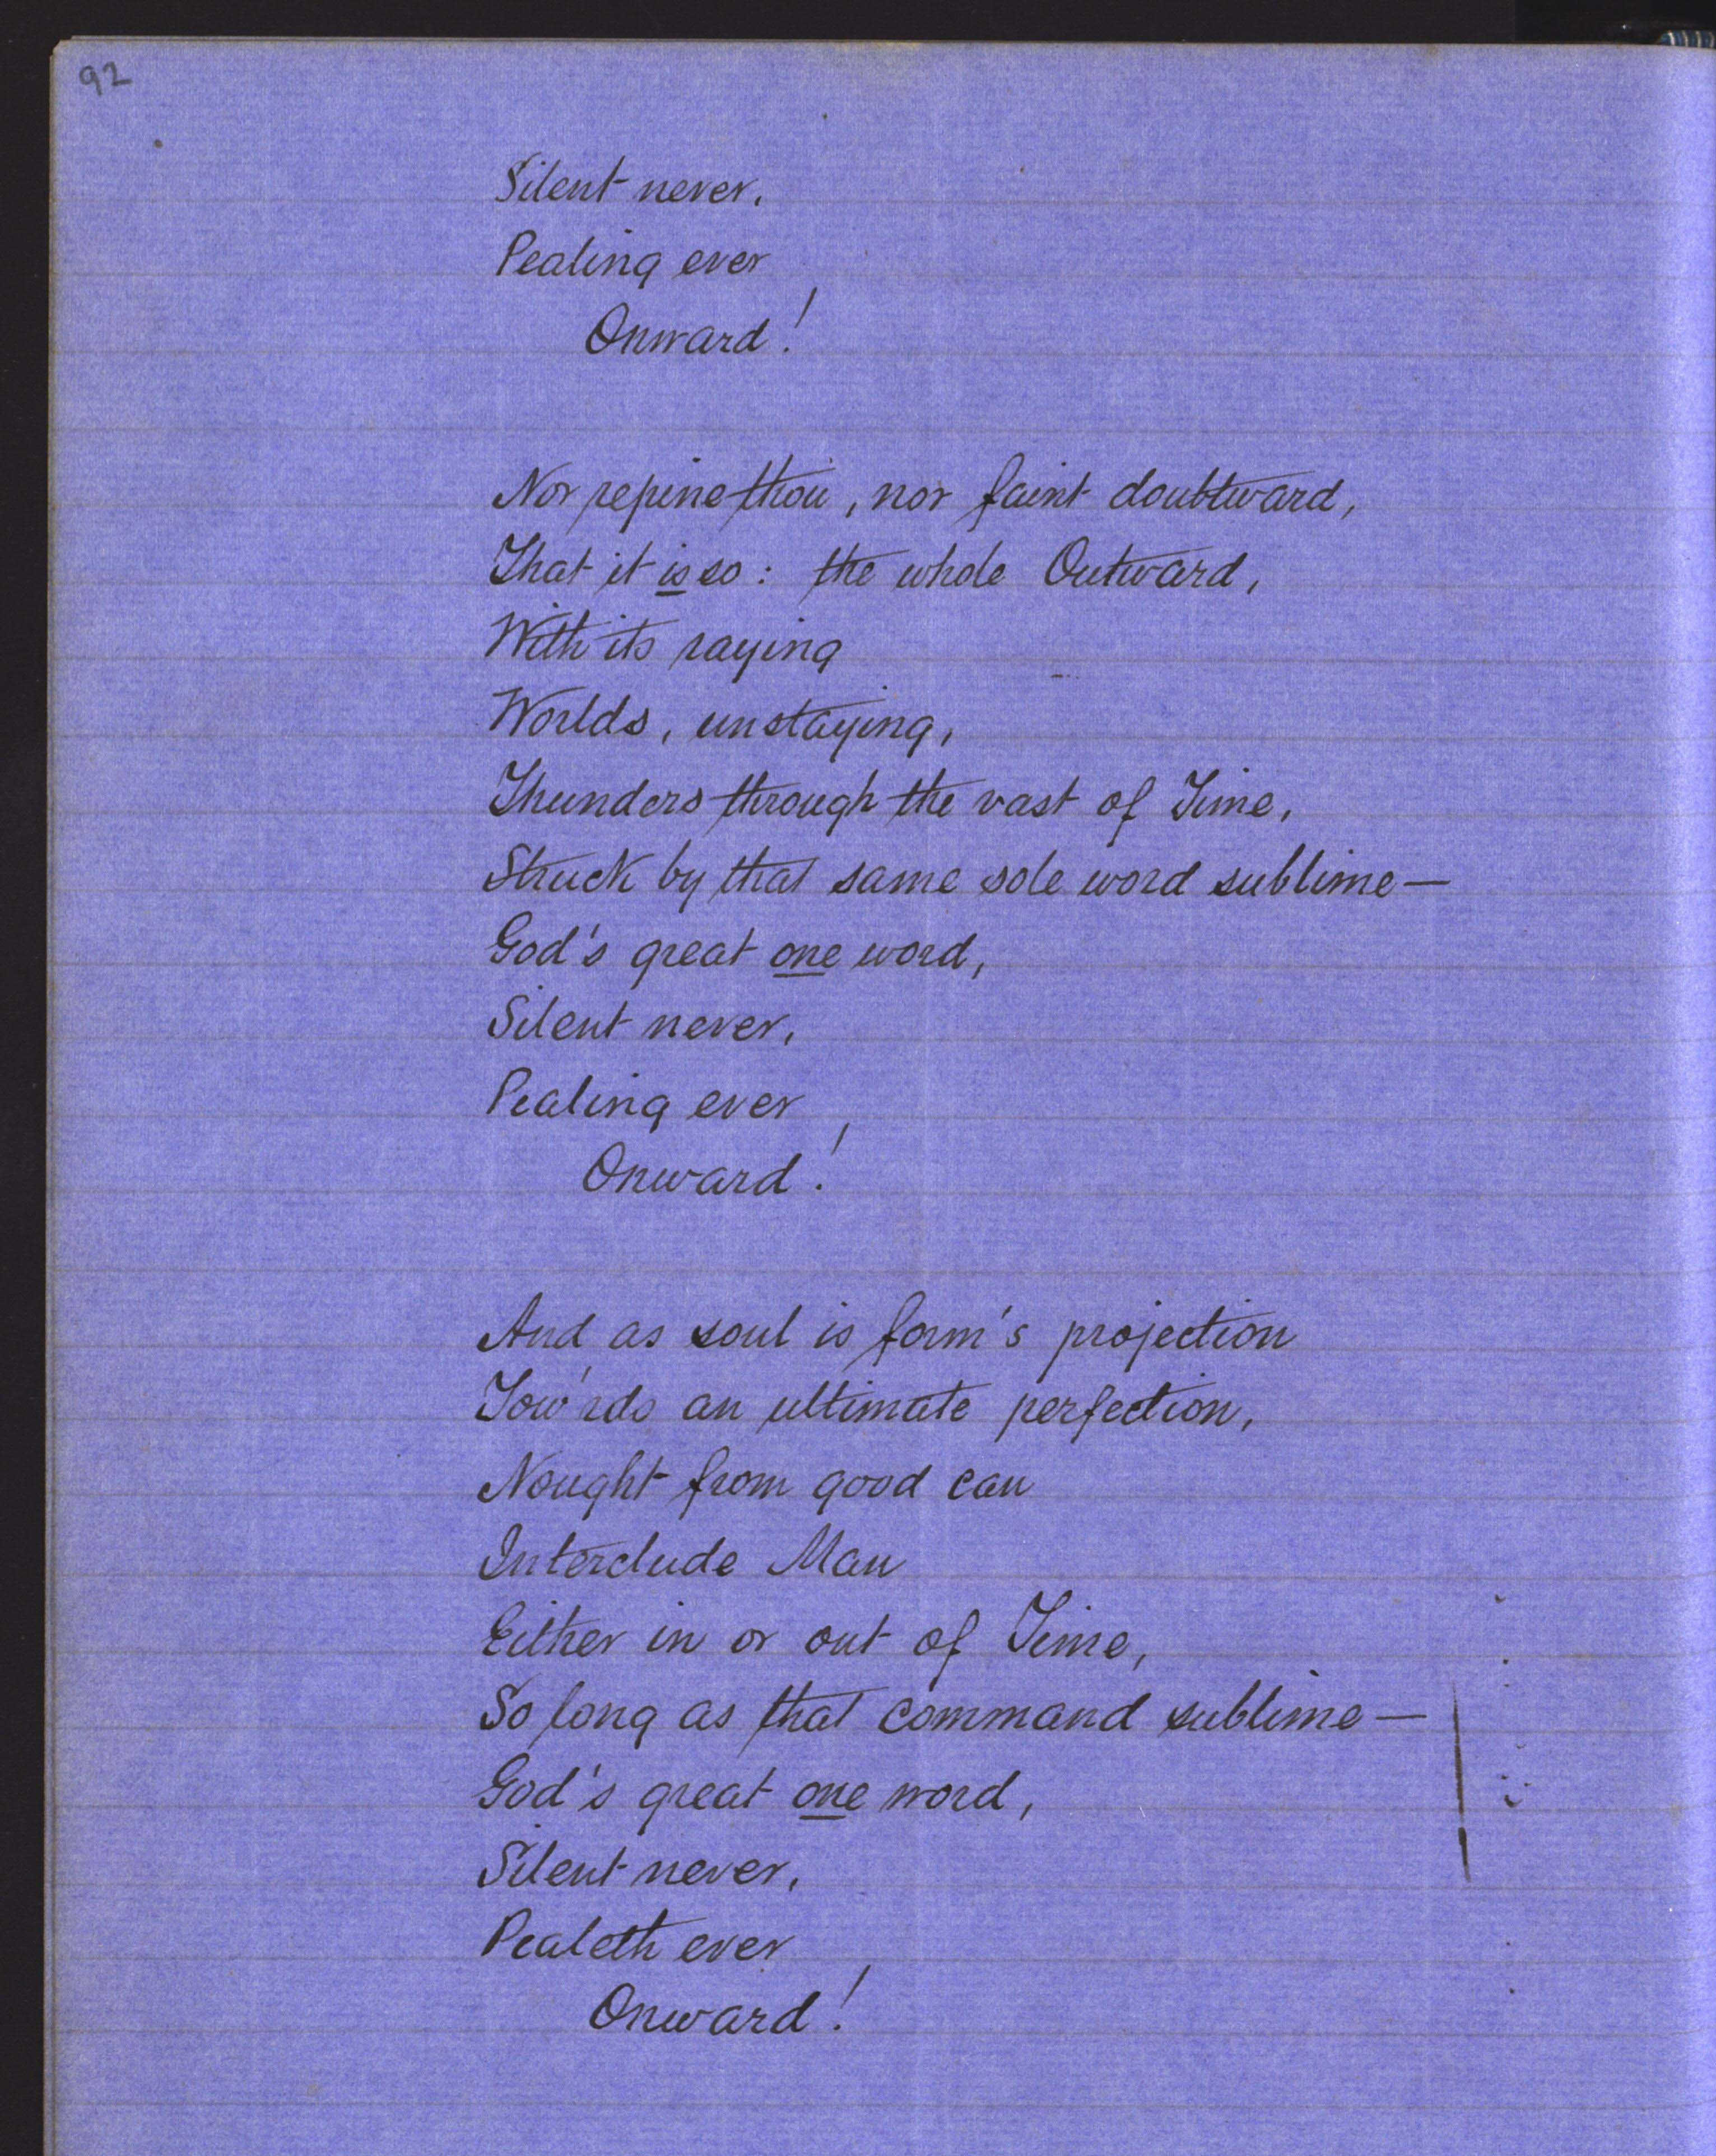 92
Silent never,
Pealing ever
Onward!
Nor repine thou, nor faint doubtward,
That it is so: the whole Outward,
With its raying
Worlds, unstaying,
Thunders through the vast of Time,
Struck by that same sole word sublime—
God's great one word,
Silent never,
Pealing ever
Onward!
And as soul is form's projection
Tow'rds an ultimate perfection,
Nought from good can
Interclude Man
Either in or out of Time,
So long as that command sublime—
God's great one word,
Silent never,
Pealeth ever
Onward!